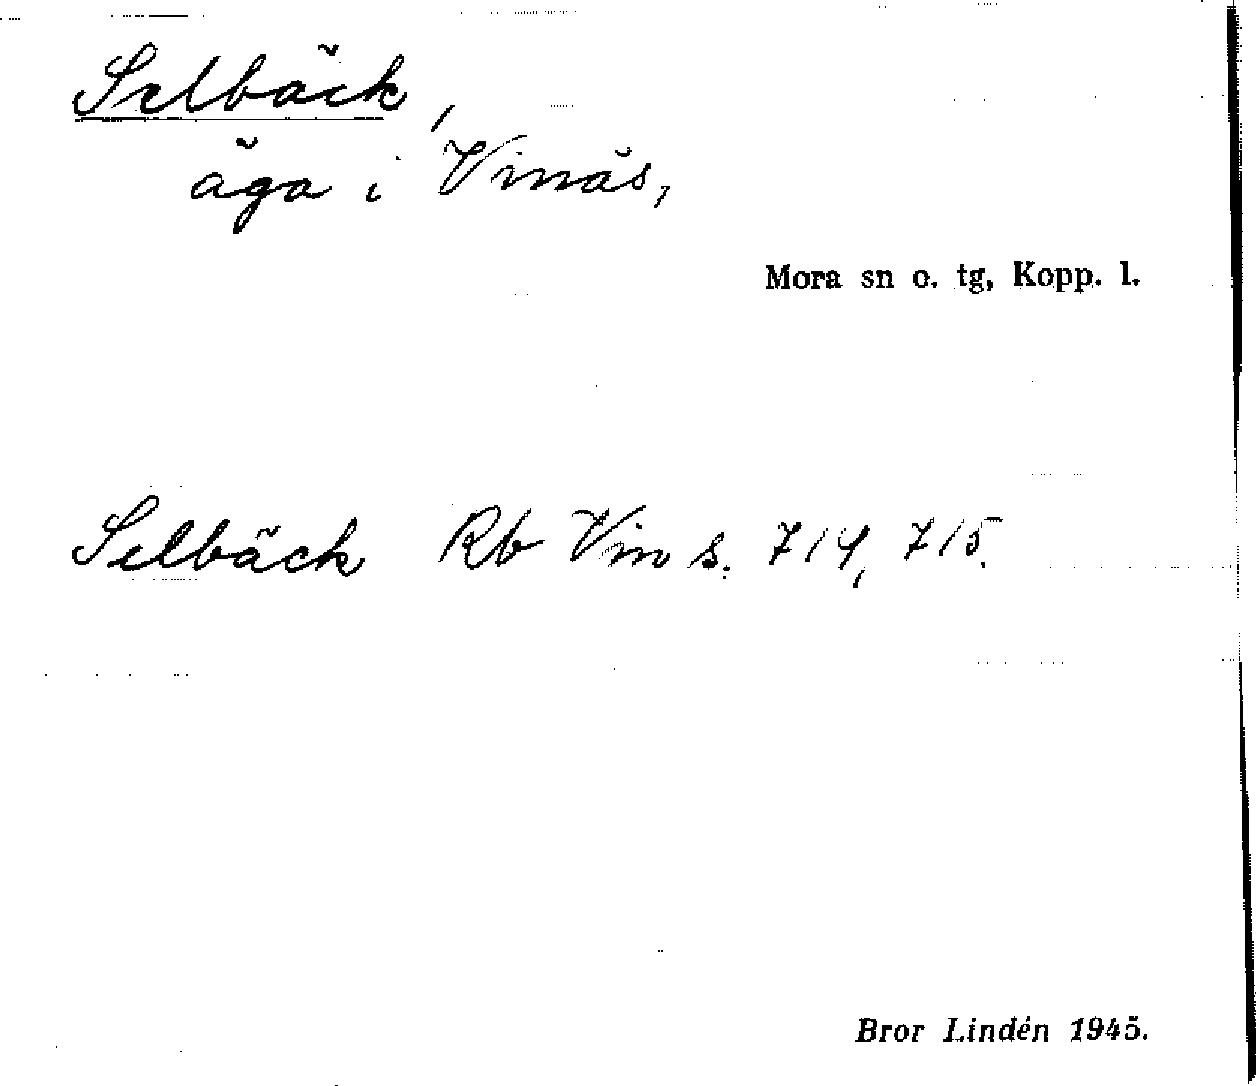 Selbäck,
äga i Vinäs,
Mora sn o. tg, Kopp. l.
Selbäck Rb Vin s. 714, 715.
Bror Lindén 1945.